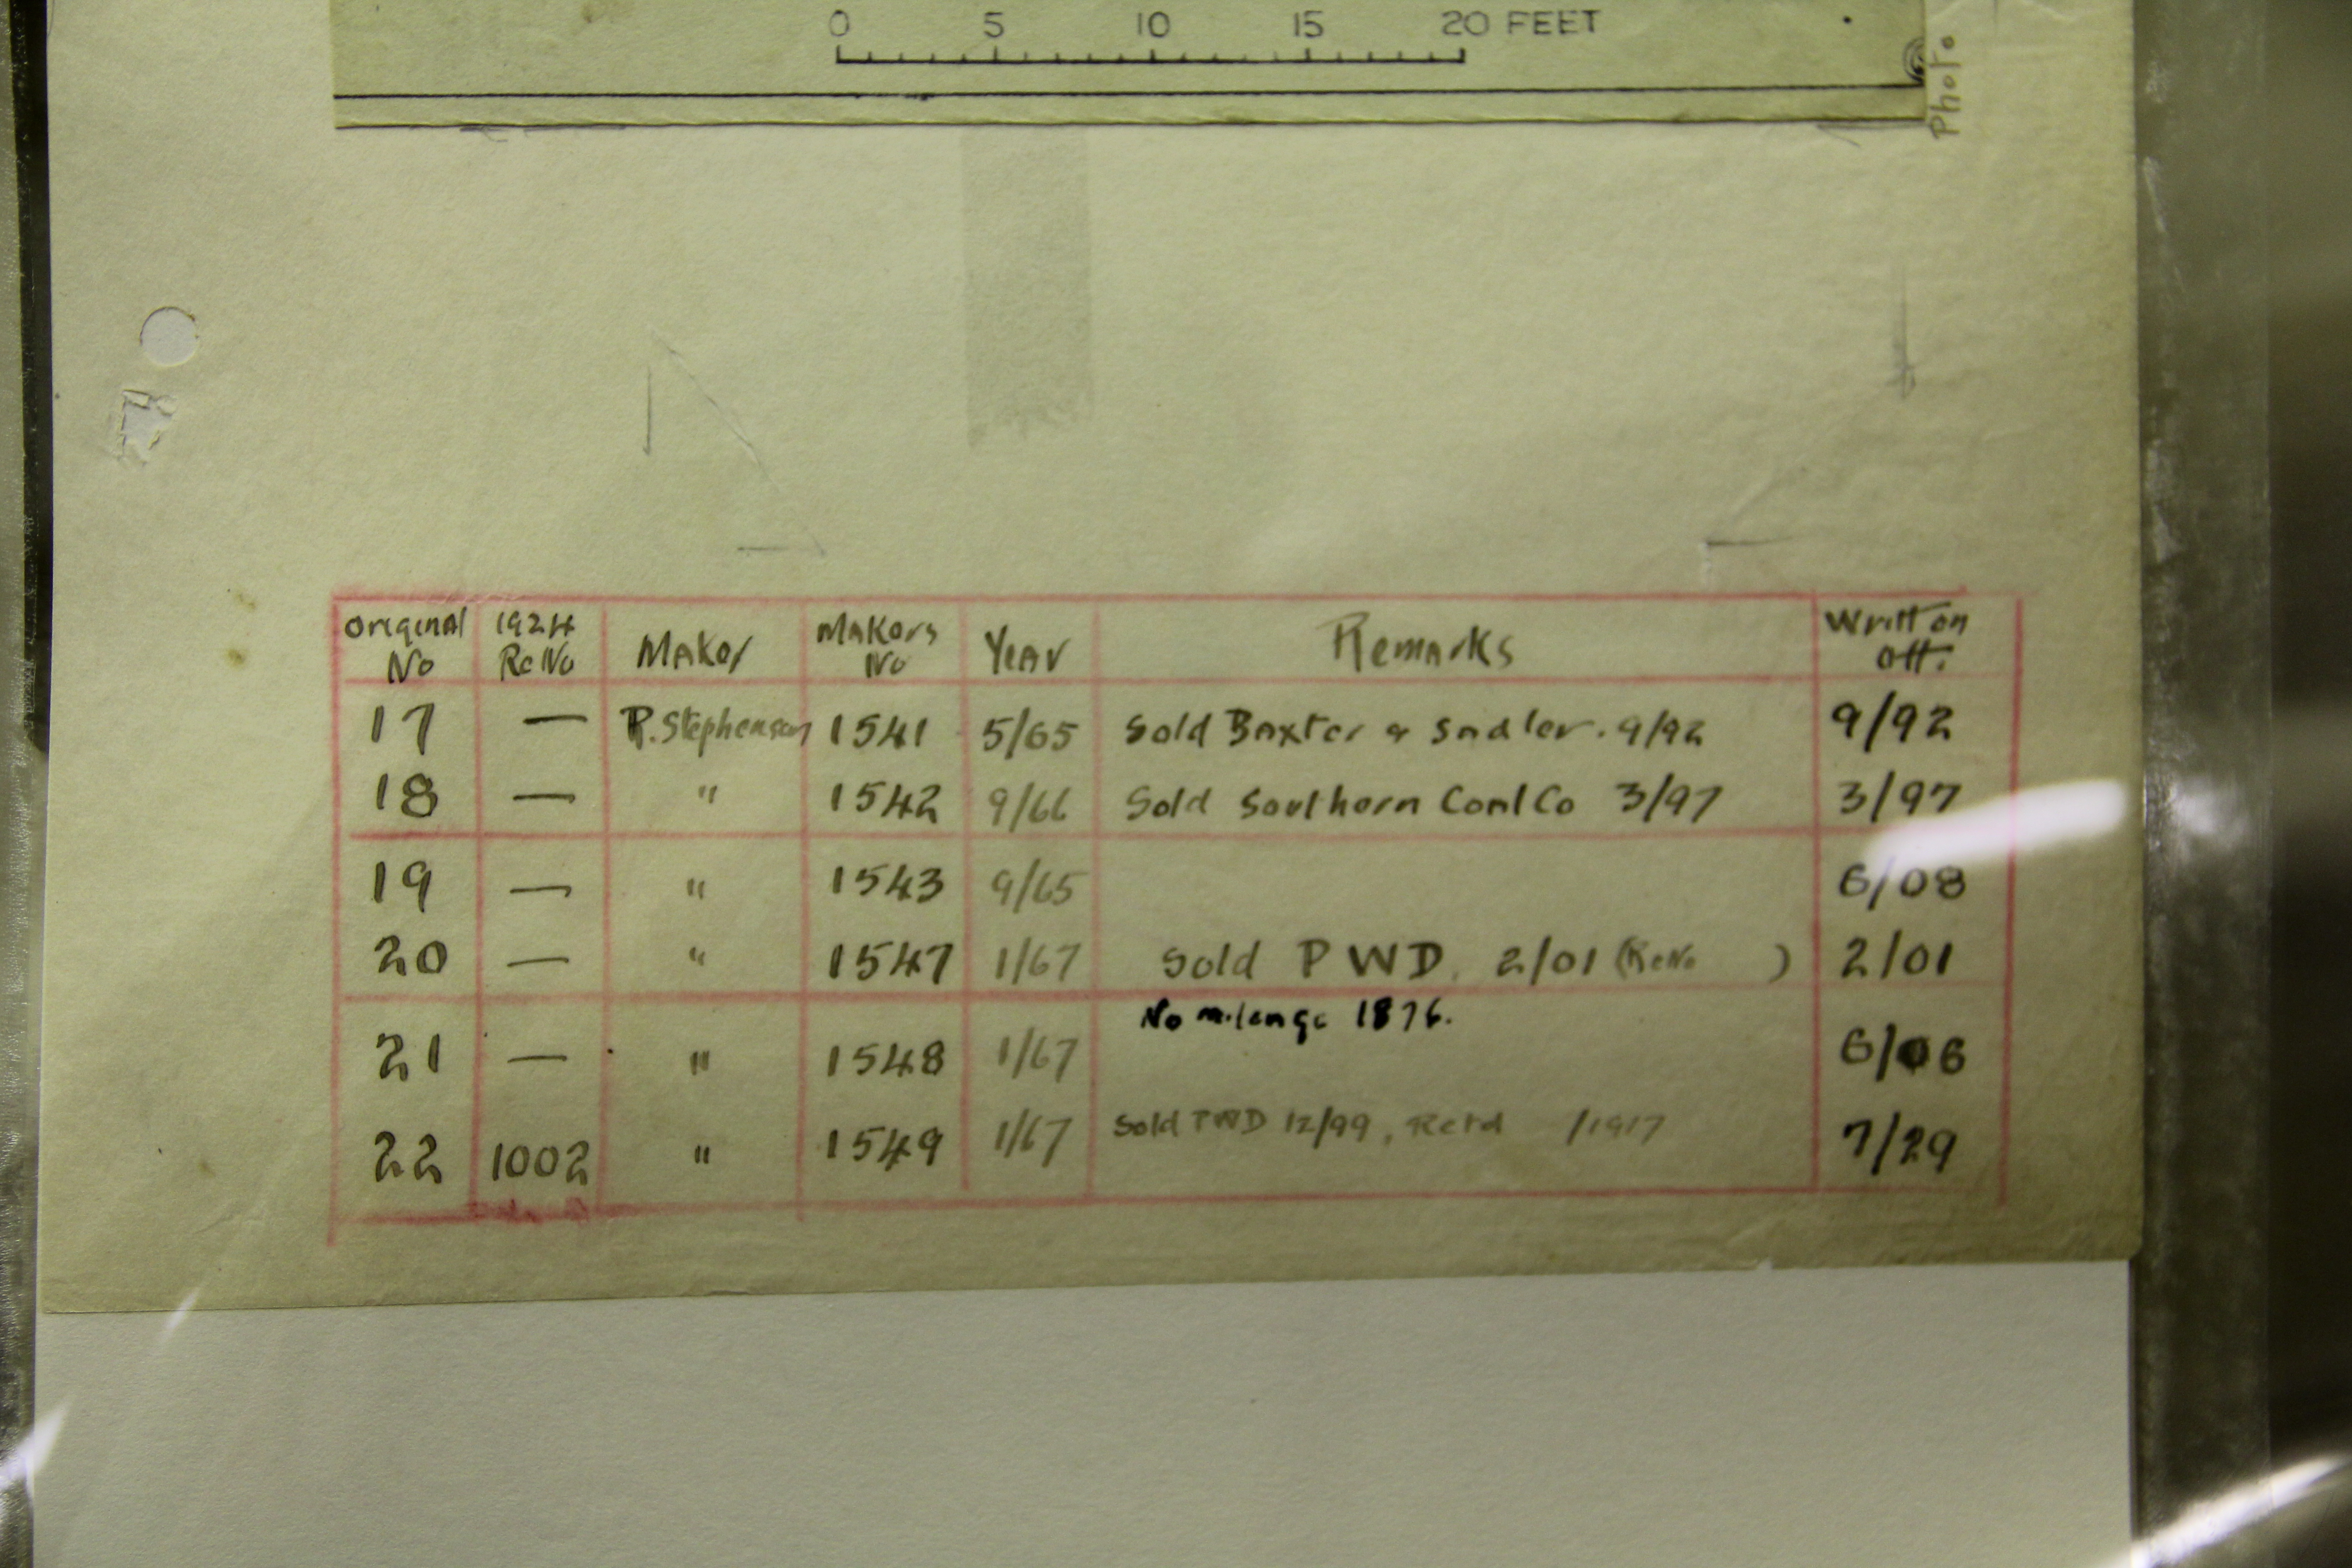 0 5 10 15 20 FEET
Photo
Original No 1924 Re No Maker Makers No Year Remarks Written off.
17 — R. Stephenson 1541 5/65 Sold Baxter & Sadler. 9/92 9/92
18 — " 1542 9/66 Sold Southern Coal Co 3/97 3/97
19 — " 1543 9/65 6/08
20 — " 1547 1/67 Sold PWD. 2/01 (ReNo ) 2/01
No mileage 1876.
21 — " 1548 1/67 6/06
22 1002 " 1549 1/67 Sold PWD 12/99, Retd /1917 7/29